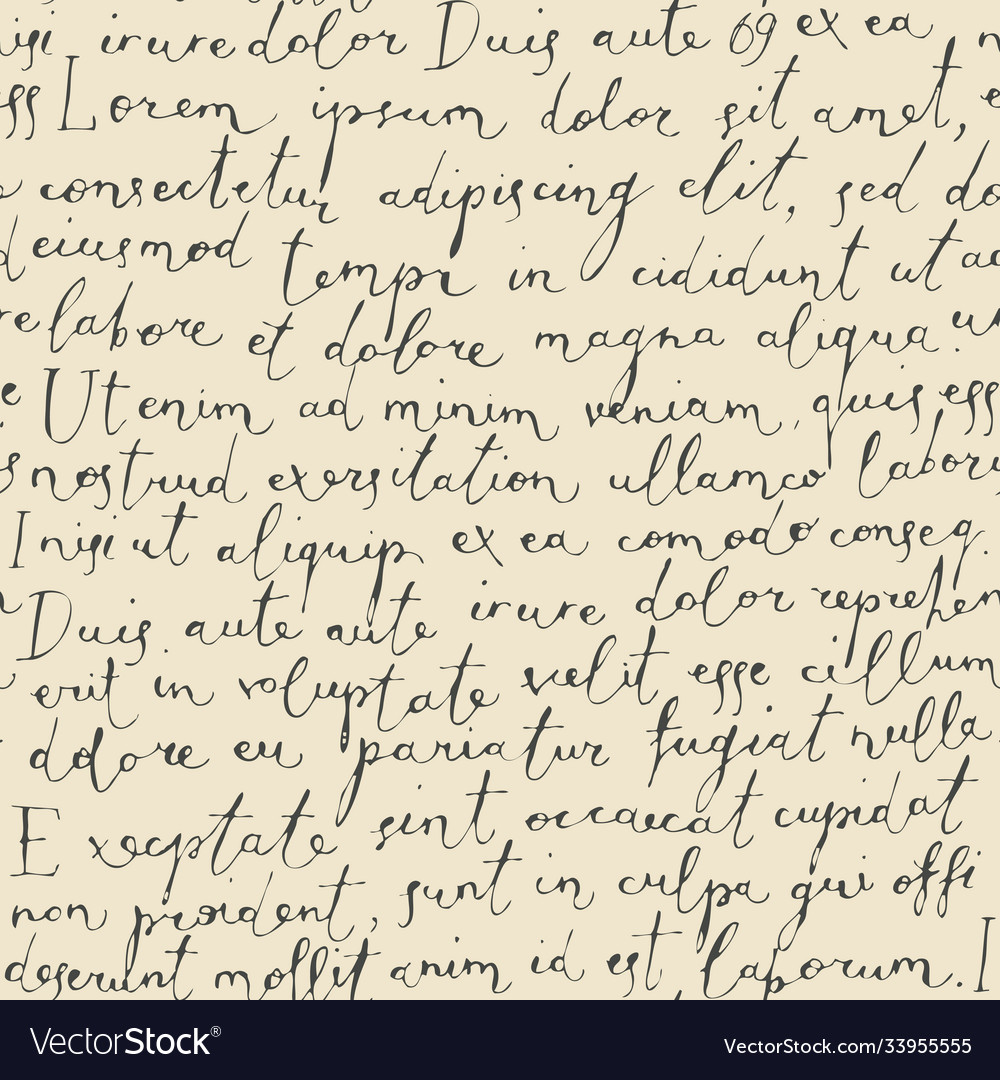 irure dolor Duis aute 69 ex ea
Lorem ipsum dolor sit amet,
consectetur adipiscing elit, sed do
eiusmod tempr in cididunt ut
labore et dolore magna aliqua.
Ut enim ad minim veniam, quis ess
nostrud exersitation ullamco
I nisi ut aliquip ex ea comodo conseq.
Duis. aute aute irure dolor reprehen
erit in voluptate vœlit esse cillum
dolore eu pariatur fugiat nulla
Execptate sint occaecat cupidat
non proident, sunt in culpa qui offi
deserunt mollit anim id est laborum. I
VectorStock®
VectorStock.com/33955555